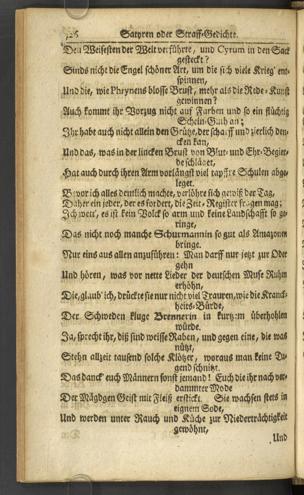 126 Satyren oder Straff-Gedichte.
Den Weisesten der Welt verführte, und Cyrum in den Sack
gesteckt?
Sinds nicht die Engel schöner Art, um die sich viele Krieg' ent-
spinnen,
Und die, wie Phrynens blosse Brust, mehr als die Rede-Kunst
gewinnen?
Auch kommt ihr Vorzug nicht auf Farben und so ein flüchtig
Schein-Gut an;
Ihr habt auch nicht allein den Grütze, der scharff und zierlich den-
cken kan,
Und das, was in der lincken Brust von Blut- und Ehr-Begier-
de schläget,
Hat auch durch ihren Arm vorlängst viel tapffre Schulen abge-
leget.
Bevor ich alles deutlich machte, verlöhre sich gewiß der Tag,
Daher ein jeder, der es fordert, die Zeit-Register fragen mag;
Ich weiß, es ist kein Volck so arm und keine Landschafft so ge-
ringe,
Das nicht noch manche Schurmannin so gut als Amazonen
bringe.
Nur eins aus allen anzuführen: Man darff nur jetzt zur Oder
gehn
Und hören, was vor nette Lieder der deutschen Muse Ruhm
erhöhn,
Die, glaub' ich, drückte sie nur nicht viel Trauren, wie die Kranck-
heits-Bürde,
Der Schweden kluge Brennerin in kurtzem überhohlen
würde.
Ja, sprecht ihr, diß sind weisse Raben, und gegen eine, die was
nützt,
Stehn allzeit tausend solche Klötzer, woraus man keine Tu-
gend schnitzt.
Das danck' euch Männern sonst jemand! Euch die ihr nach ver-
dammter Mode
Der Mägdgen Geist mit Fleiß erstickt. Sie wachsen stets in
eignem Sode,
Und werden unter Rauch und Küche zur Niederträchtigkeit
gewöhnt,
Und